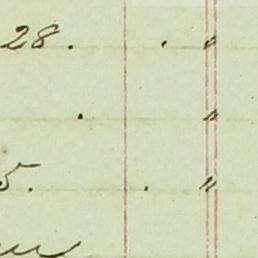 28. . "
. "
5. . "